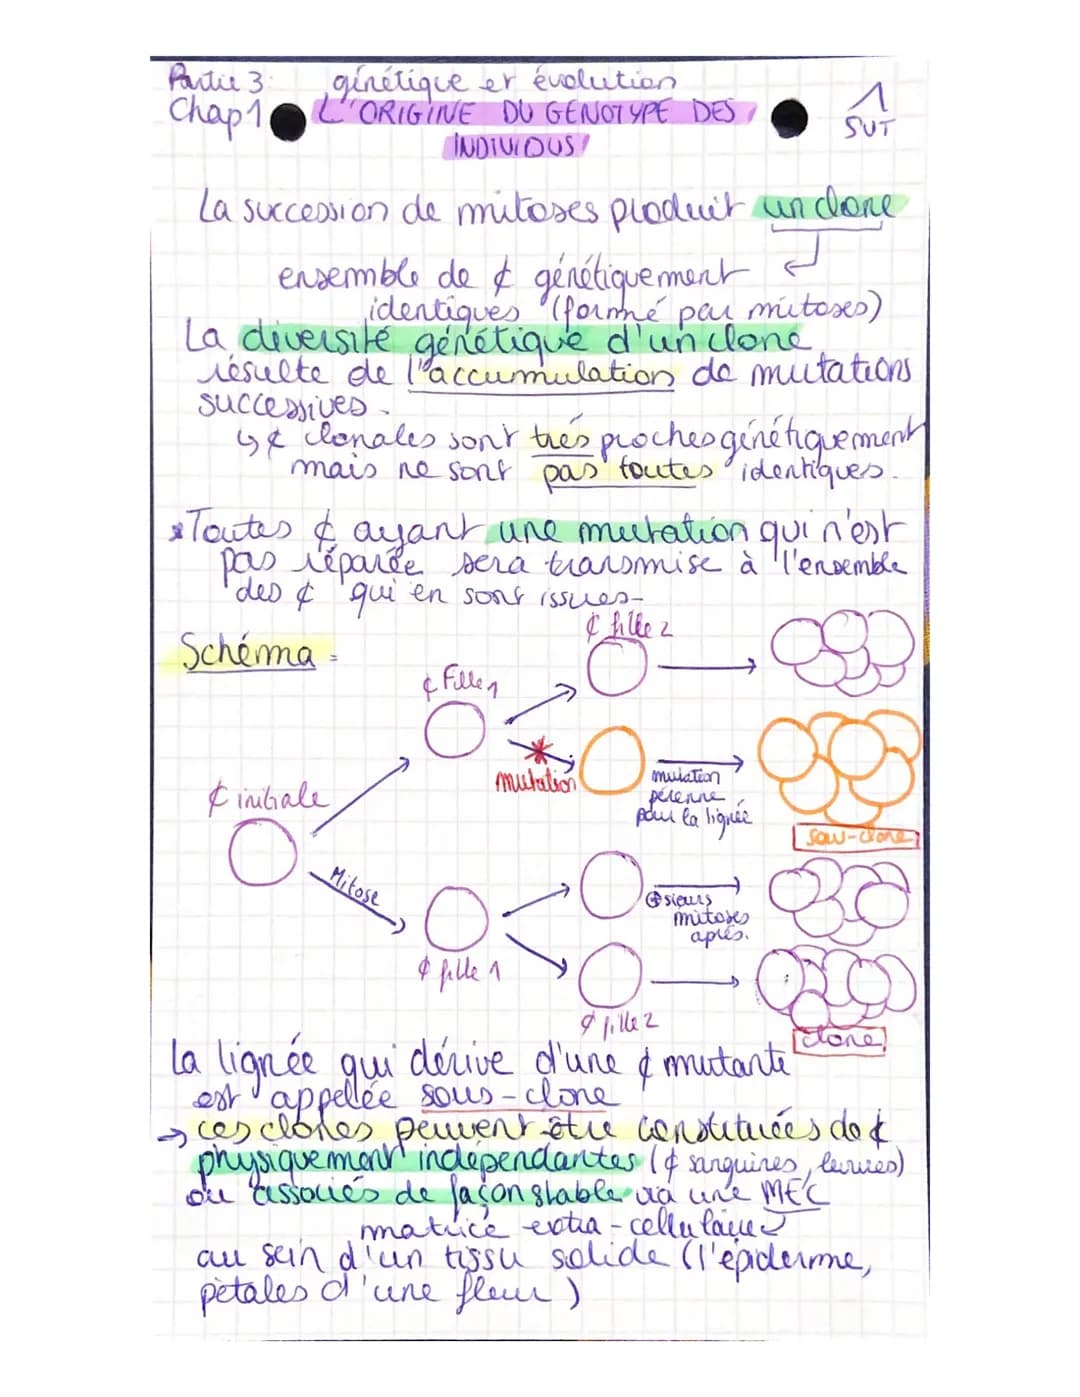 Partie 3: génétique et évolution
Chap 1 L'ORIGINE DU GENOTYPE DES
INDIVIDUS
1
SVT
La succession de mitoses produit un clone
ensemble de ¢ génétiquement
identiques (formé par mitoses)
La diversité génétique d'un clone
résulte de l'accumulation de mutations
successives.
↳ ¢ clonales sont très proches génétiquement
mais ne sont pas toutes identiques.
* Toutes ¢ ayant une mutation qui n'est
pas réparée sera transmise à l'ensemble
des ¢ qui en sont issues-
Schéma :
¢ fille 2
¢ Fille 1
mutation
mutation
pérenne
pour la lignée
sous-clone
¢ initiale
Mitose
⊕sieurs
mitoses
après.
¢ fille 1
¢ fille 2
clone
La lignée qui dérive d'une ¢ mutante
est appelée sous-clone
→ ces clones peuvent être constituées de ¢
physiquement indépendantes (¢ sanguines, levures)
ou associés de façon stable via une MEC
matrice extra-cellulaire
au sein d'un tissu solide (l'épiderme,
pétales d'une fleur)